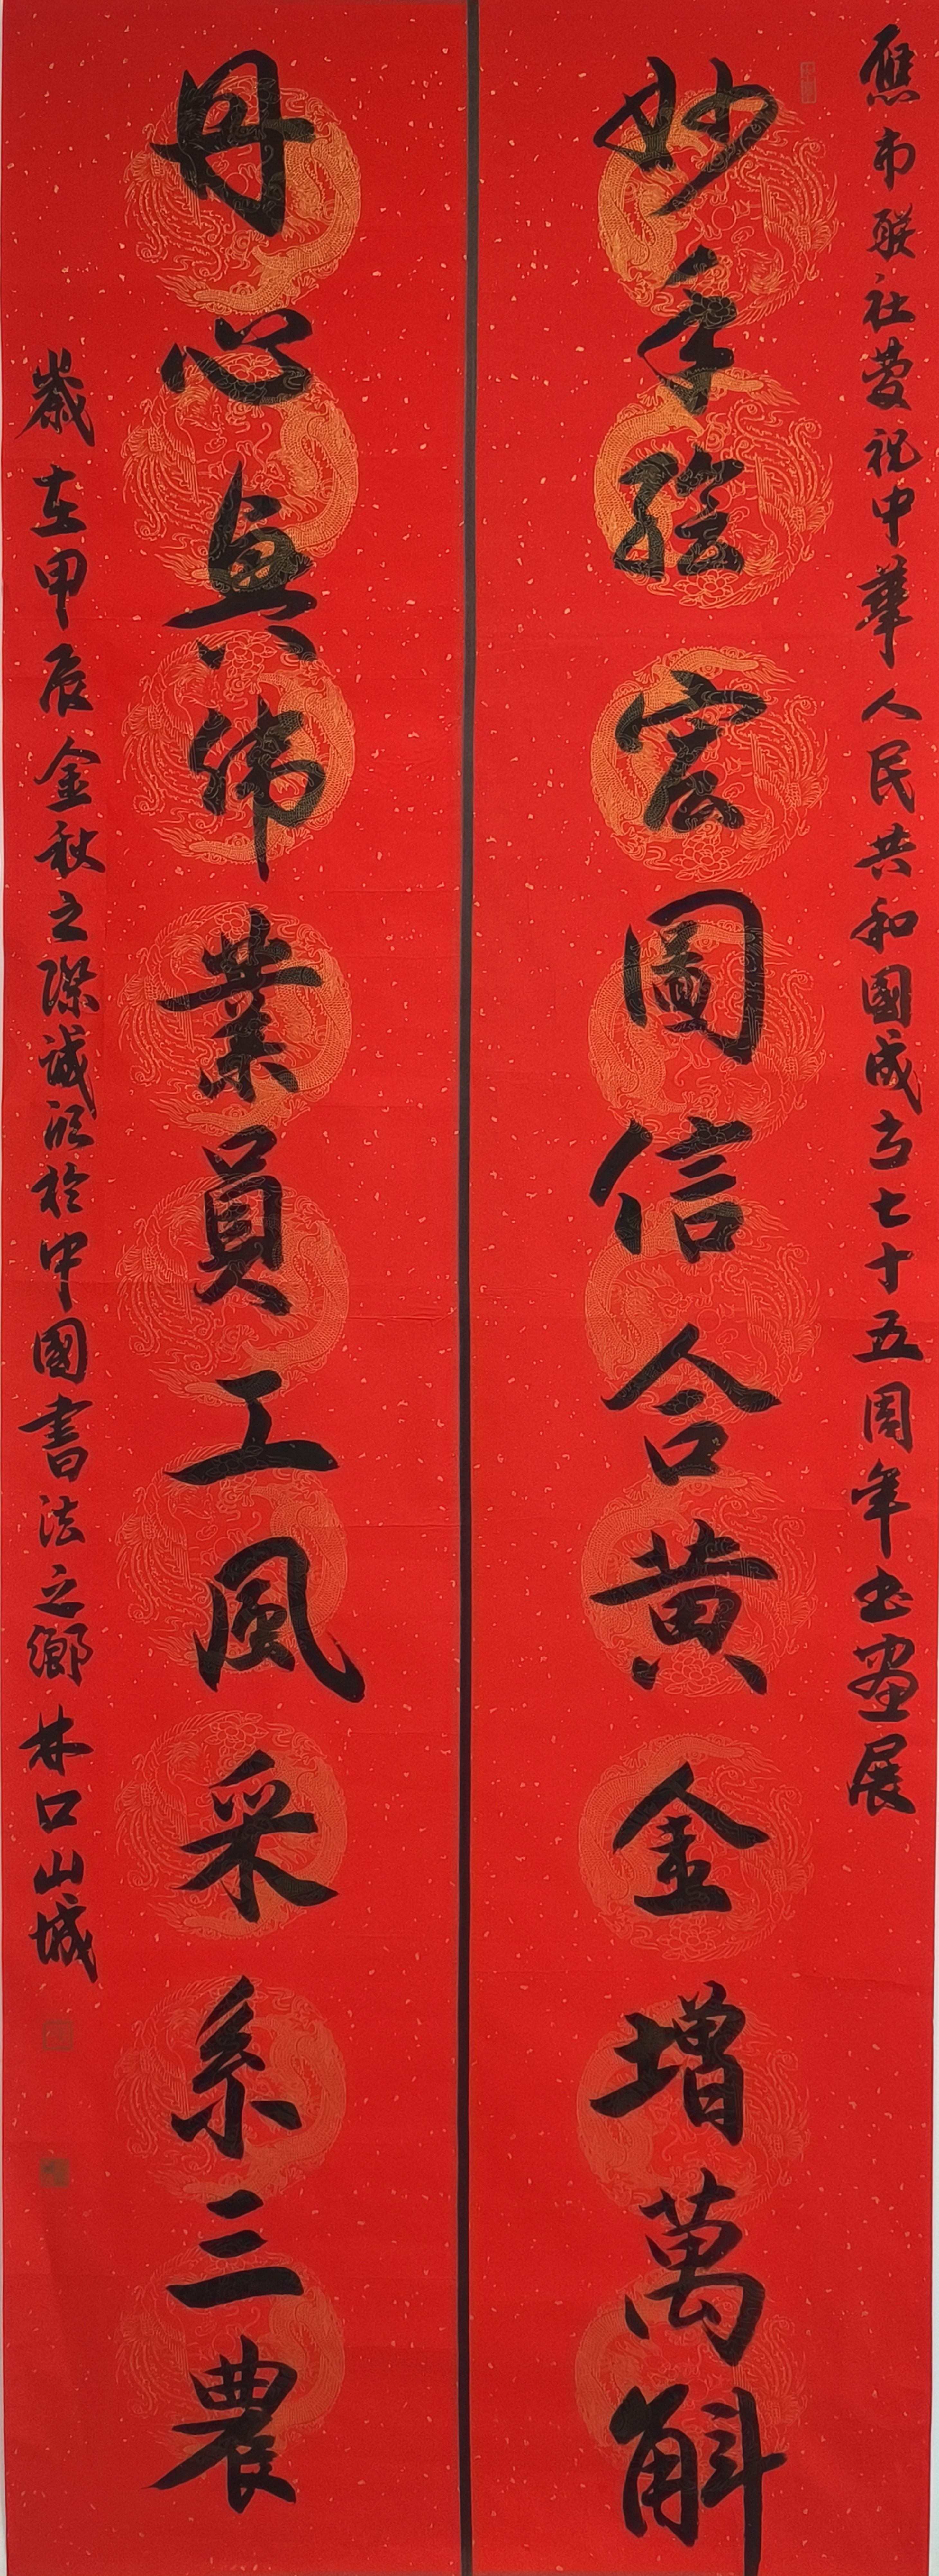 應市联社慶祝中華人民共和國成立七十五周年书畫展
妙手绘宏圖信合黄金增萬斛
丹心興偉業員工風采系三農
歲在甲辰金秋之際誠於中國書法之鄉林口山城